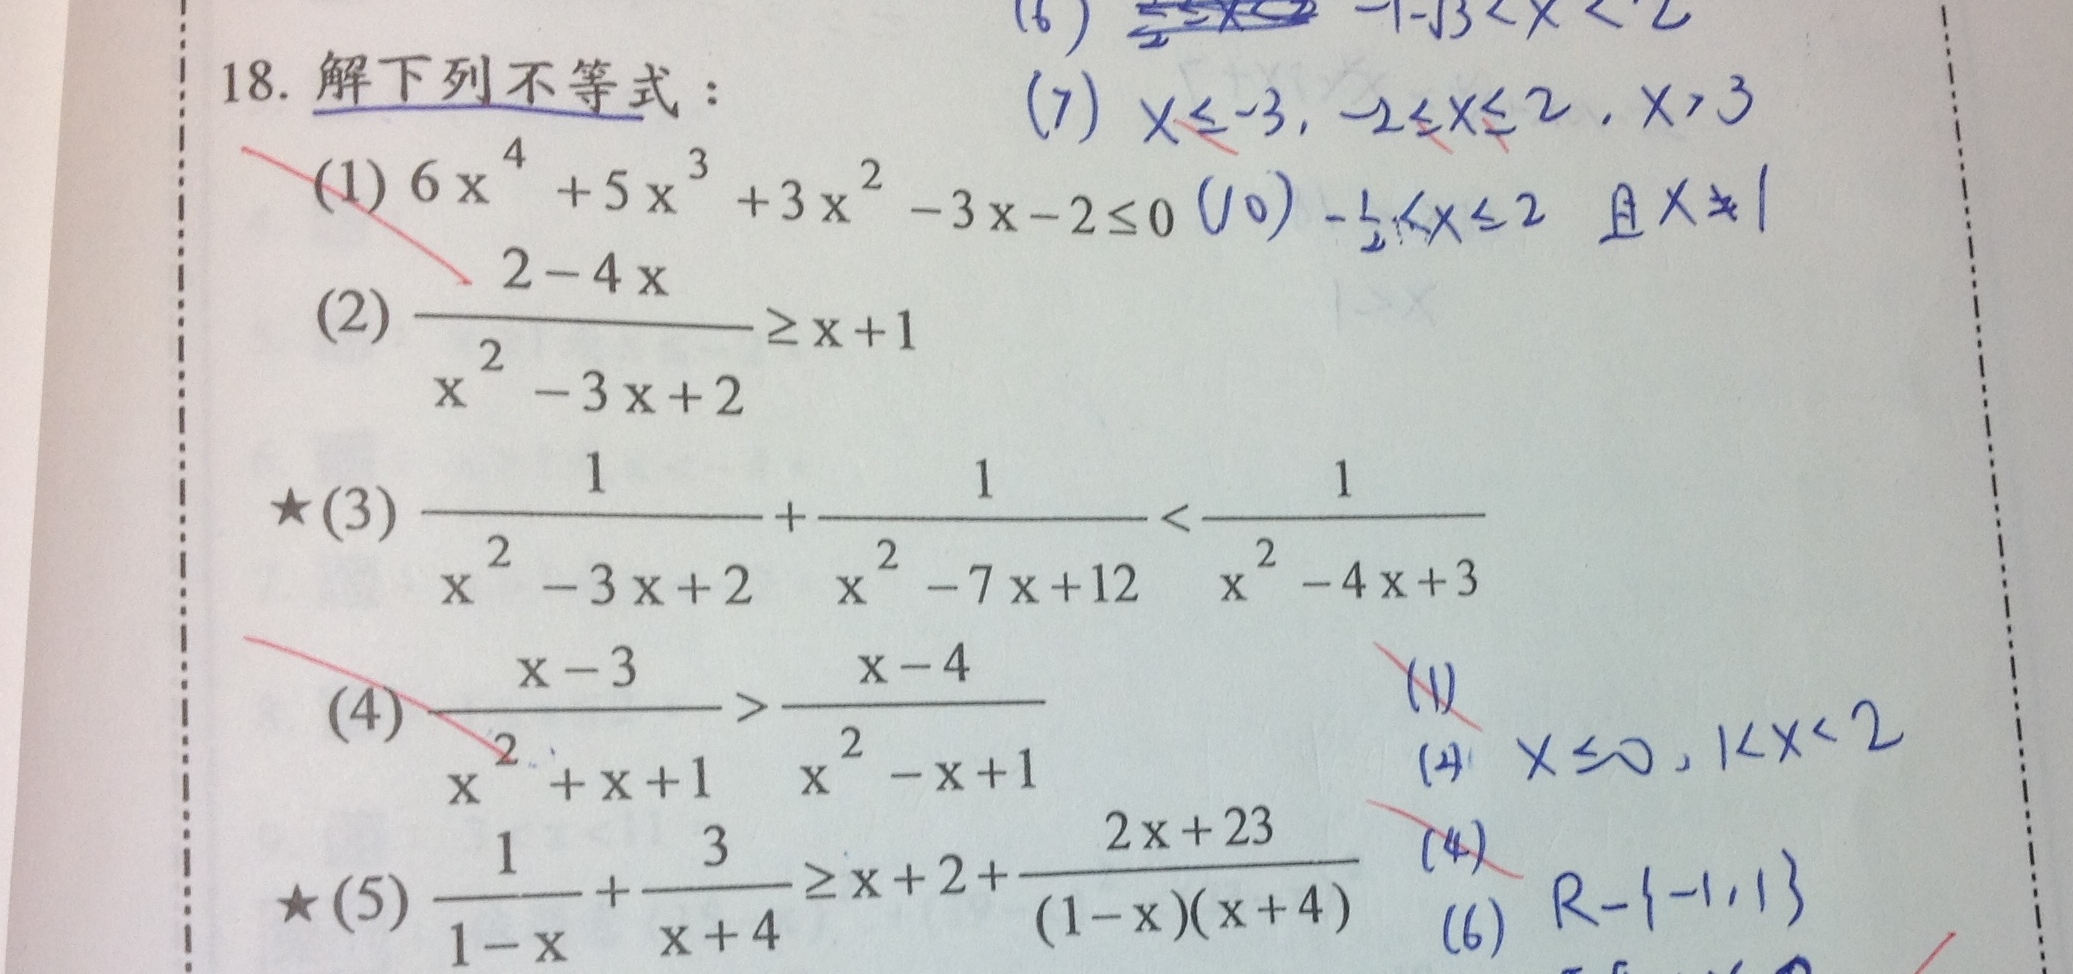 (6) -1-√3<x<2
18. 解下列不等式：
(7) x≤-3, -2≤x≤2, x>3
(1) 6x⁴+5x³+3x²-3x-2≤0
(10) -1/2<x≤2 且x≠1
(2) (2-4x)/(x²-3x+2)≥x+1
★(3) 1/(x²-3x+2)+1/(x²-7x+12)<1/(x²-4x+3)
(4) (x-3)/(x²+x+1)>(x-4)/(x²-x+1)
(1)
(2) x≤0, 1<x<2
★(5) 1/(1-x)+3/(x+4)≥x+2+(2x+23)/((1-x)(x+4))
(4)
(6) R-{-1,1}